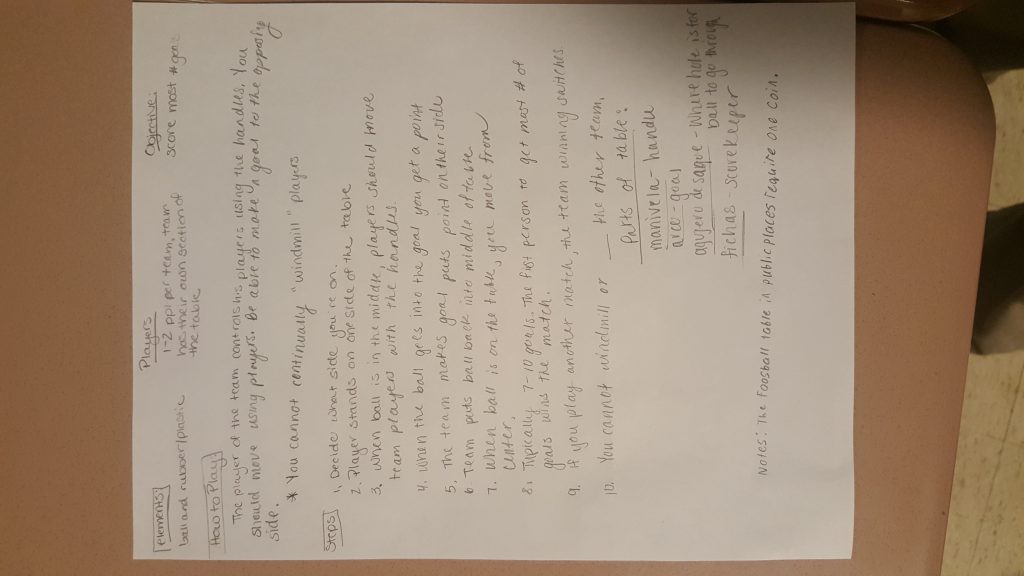 elements
ball and rubber/plastic
Players
1-2 ppl per team, team
has their own section of
the table
Objective:
score most # goals
How to Play
The player of the team controls his players using the handles. You
should move using players. Be able to make a goal to the opposite
side.
* You cannot continually "windmill" players
Steps
1. Decide what side you're on.
2. Player stands on one side of the table
3. when ball is in the middle, players should move
team players with the handles.
4. when the ball gets into the goal you get a point
5. The team makes goal puts point on their side
6. Team puts ball back into middle of table
7. When ball is on the table, you move from
center.
8. Typically 7-10 goals. The first person to get most # of
goals wins the match.
9. If you play another match, the team winning switches
10. You cannot windmill or ___ the other team.
Parts of table:
manivela - handle
arco - goal
agujero de saque - Where hole is for
ball to go through
fichas - scorekeeper
Notes: The Foosball table in public places require one coin.